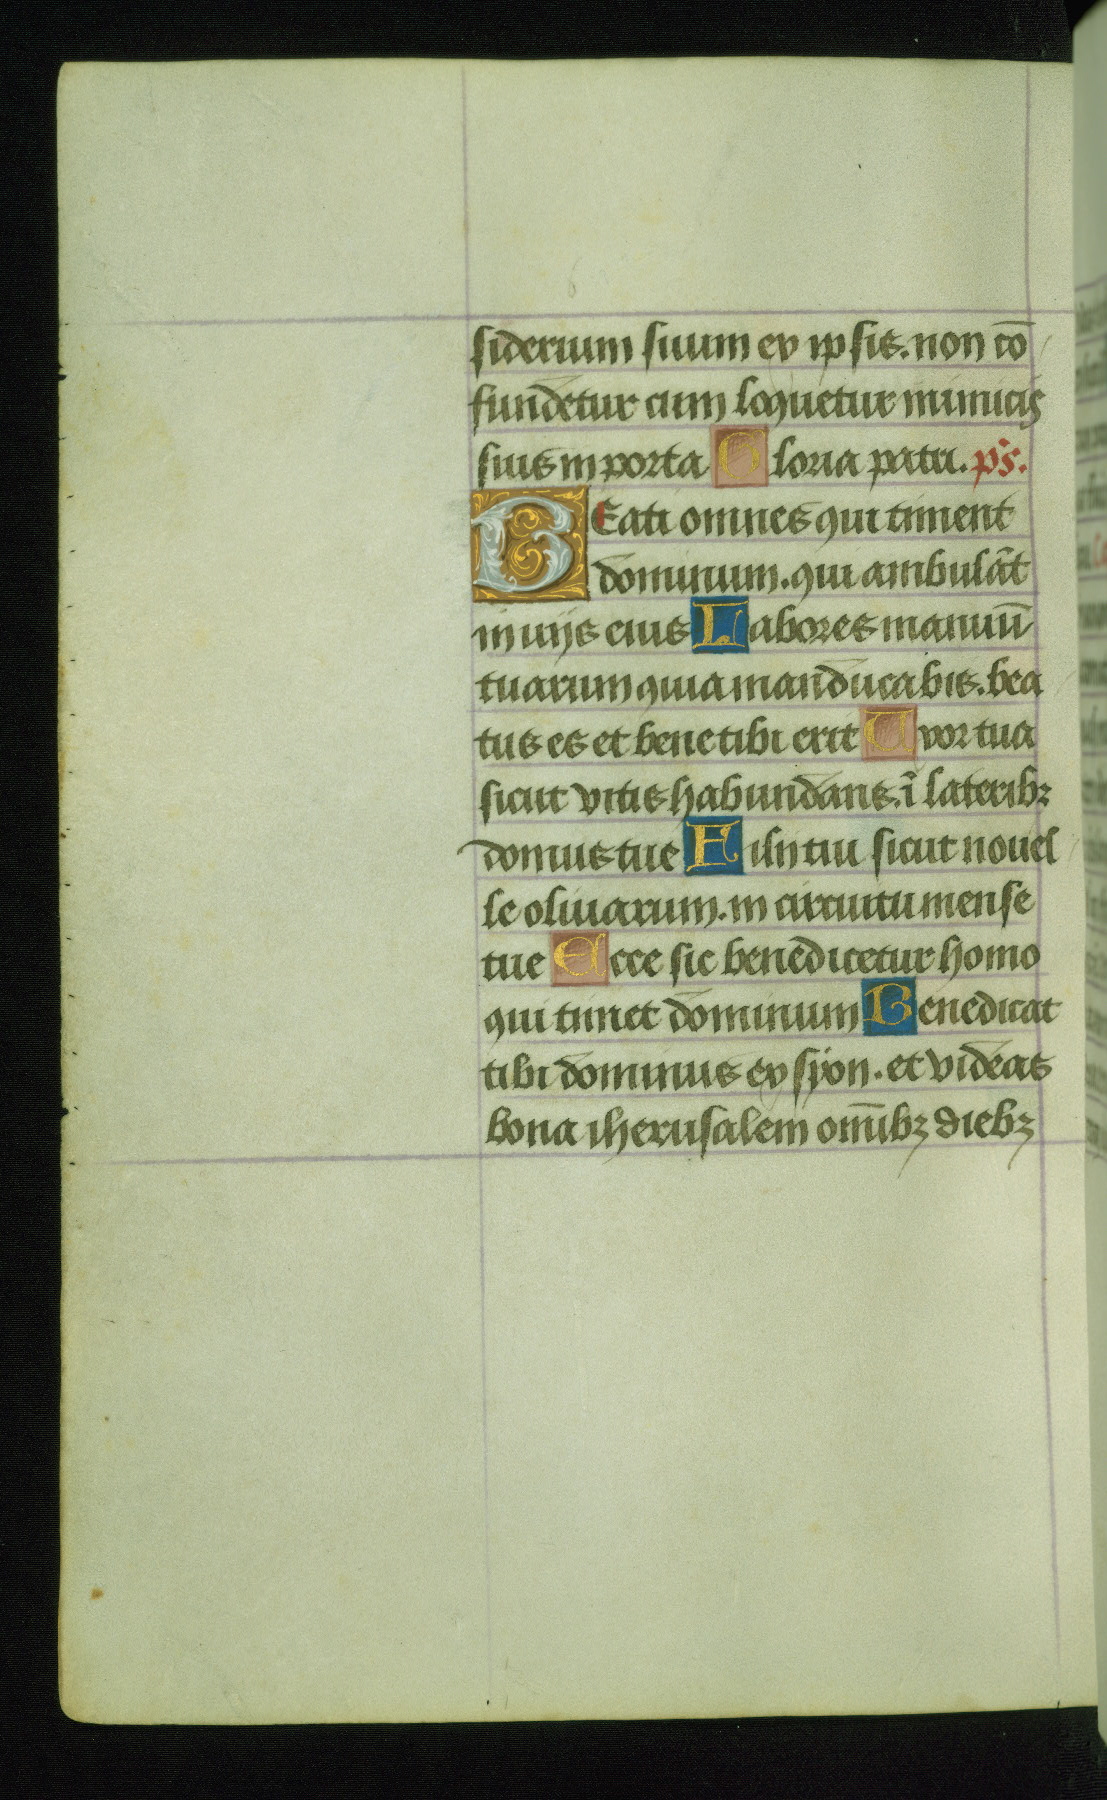 siderium suum ex ipsis. non cō
fundetur cum loquetur inimicis
suis in porta Gloria patri. ps̄.
BEati omnes qui timent
dominum. qui ambulāt
in uijs eius Labores manuū
tuarum quia manducabis. bea
tus es et bene tibi erit Uxor tua
sicut vitis habundans. ī lateribꝫ
domus tue Filij tui sicut nouel
le oliuarum. in circuitu mense
tue Ecce sic benedicetur homo
qui timet dominum Benedicat
tibi dominus ex syon. et videas
bona iherusalem om̄ibꝫ diebꝫ